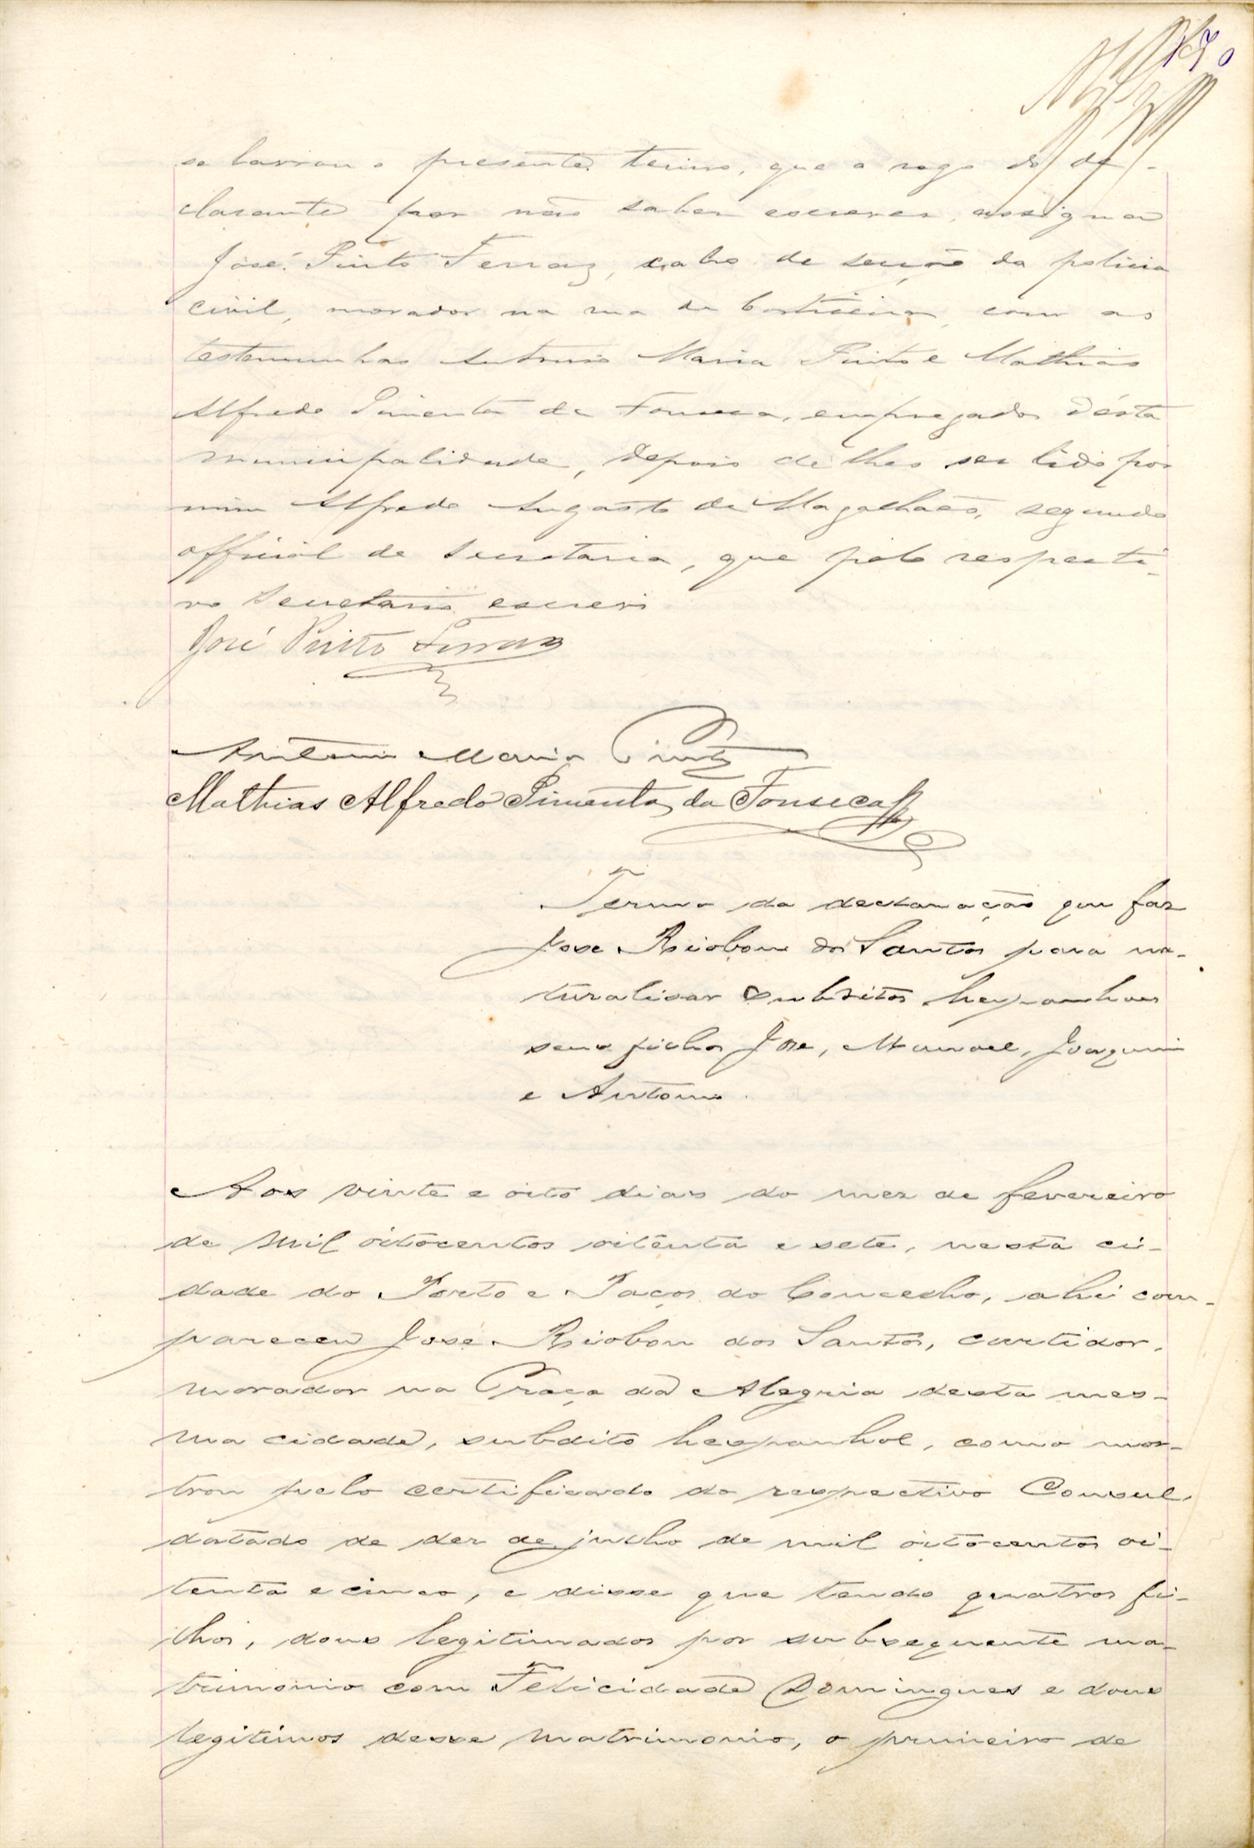 se lavrou o presente termo, que a rogo do de-
clarante por não saber escrever, assigna
José Pinto Ferraz, cabo de secção da policia
civil, morador na rua da Corticeira, com as
testemunhas Antonio Maria Pinto e Mathias
Alfredo Pimenta da Fonseca, empregados d'esta
municipalidade, depois de lhes ser lido por
mim Alfredo Augusto de Magalhães, segundo
official de Secretaria, que pelo respecti-
vo Secretario escrevi
José Pinto Ferraz
Antonio Maria Pinto
Mathias Alfredo Pimenta da Fonseca
Termo da declaração que faz
Jose Riobom dos Santos para na-
turalisar subditos hespanhoes
seus filhos Jose, Manoel, Joaquim
e Antonio.
Aos vinte e oito dias do mez de fevereiro
de mil oitocentos oitenta e sete, nesta ci-
dade do Porto e Paços do Concelho, ahi com-
pareceu José Riobom dos Santos, curtidor,
morador na Praça da Alegria desta mes-
ma cidade, subdito hespanhol, como mos-
trou pelo certificado do respectivo Consul,
datado de dez de julho de mil oitocentos oi-
tenta e cinco, e disse que tendo quatros fi-
lhos, dous legitimados por subsequente ma-
trimonio com Felicidade Domingues e dous
legitimos desse matrimonio, o primeiro de